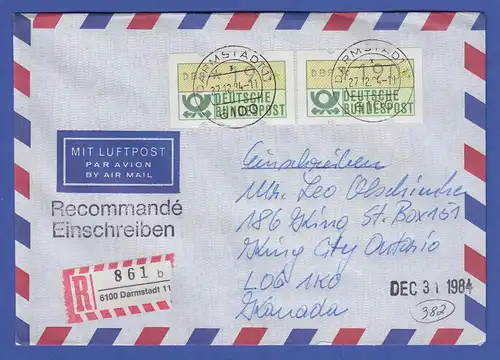 DARMSTADT 11
27.12.84-11
6100
DBP
DEUTSCHE
BUNDESPOST
DARMSTADT 11
27.12.84-11
DBP
DEUTSCHE
BUNDESPOST
MIT LUFTPOST
PAR AVION
BY AIR MAIL
Recommandé
Einschreiben
R
861 b
6100 Darmstadt 11
Einschreiben
Mr. Leo
186 King St. Box 151
King City Ontario
L0G 1K0
Kanada
DEC 31 1984
382